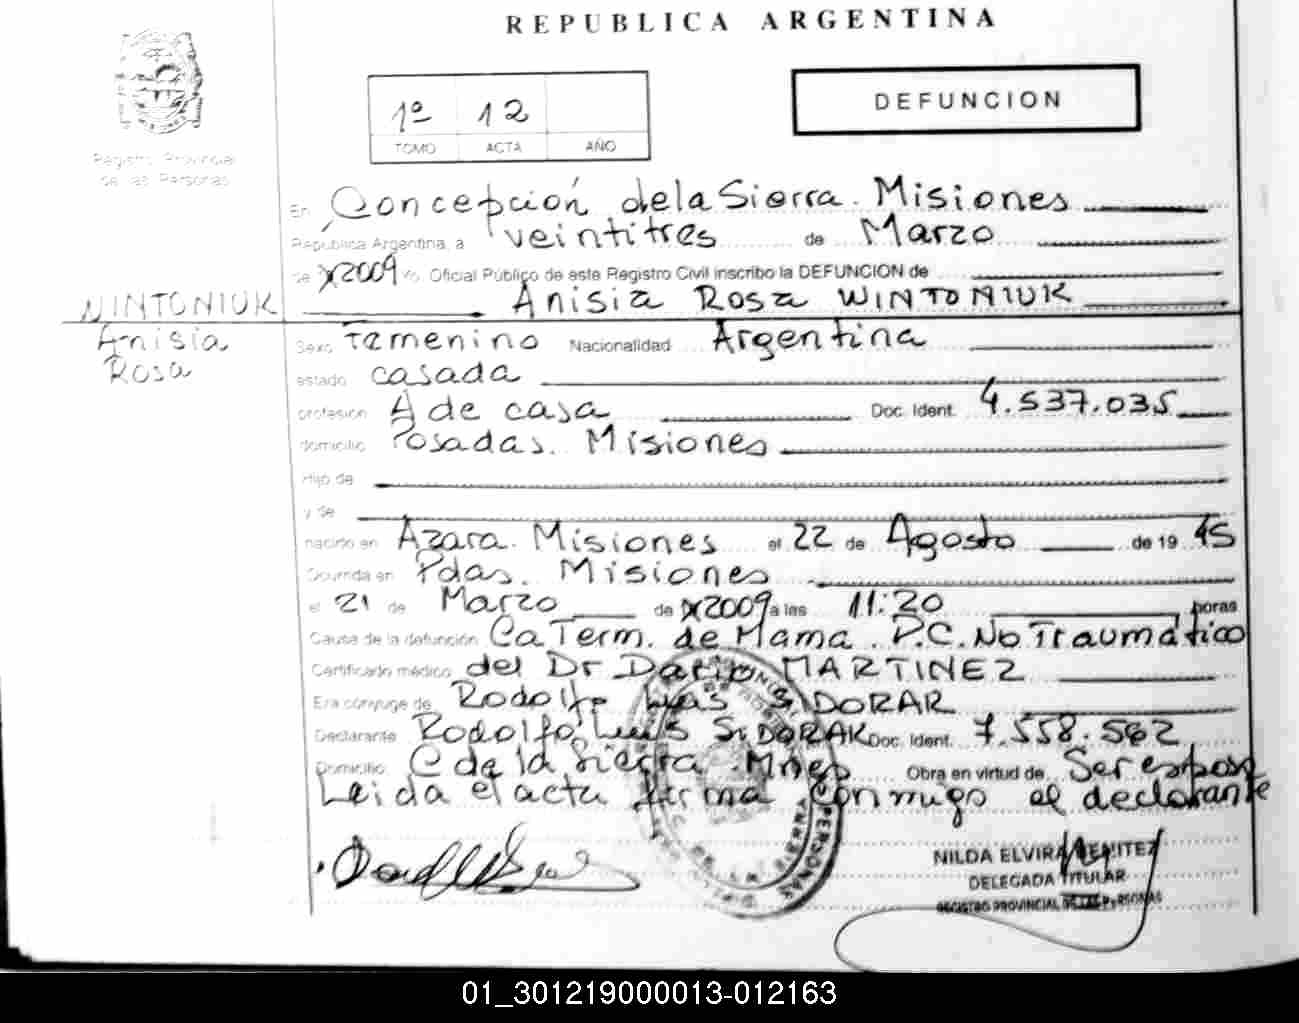 REPUBLICA ARGENTINA
1º 12
TOMO ACTA AÑO
DEFUNCION
Registro Provincial
de las Personas
En Concepción de la Sierra. Misiones
República Argentina, a veintitres de Marzo
de 2009 yo Oficial Público de este Registro Civil inscribo la DEFUNCION de
WINTONIUK
Anisia
Rosa
Anisia Rosa WINTONIUK
Sexo Femenino Nacionalidad Argentina
estado casada
profesión A de casa Doc. Ident. 4.537.035
domicilio Posadas. Misiones
Hijo de
y de
nacido en Azara. Misiones el 22 de Agosto de 19 45
Ocurrida en Pdas. Misiones
el 21 de Marzo de 2009 a las 11:20 horas
Causa de la defunción Ca Term. de Mama. P.C. No Traumático
Certificado médico del Dr Dario MARTINEZ
Era cónyuge de Rodolfo Luis SIDORAR
Declarante Rodolfo Luis SIDORAK Doc. Ident. 7.558.562
Domicilio C de la Sierra. Mnes Obra en virtud de Ser esposo
Leida el acta firma conmigo el declarante
PERSONAS
NILDA ELVIRA BENITEZ
DELEGADA TITULAR
REGISTRO PROVINCIAL DE LAS PERSONAS
01_301219000013-012163